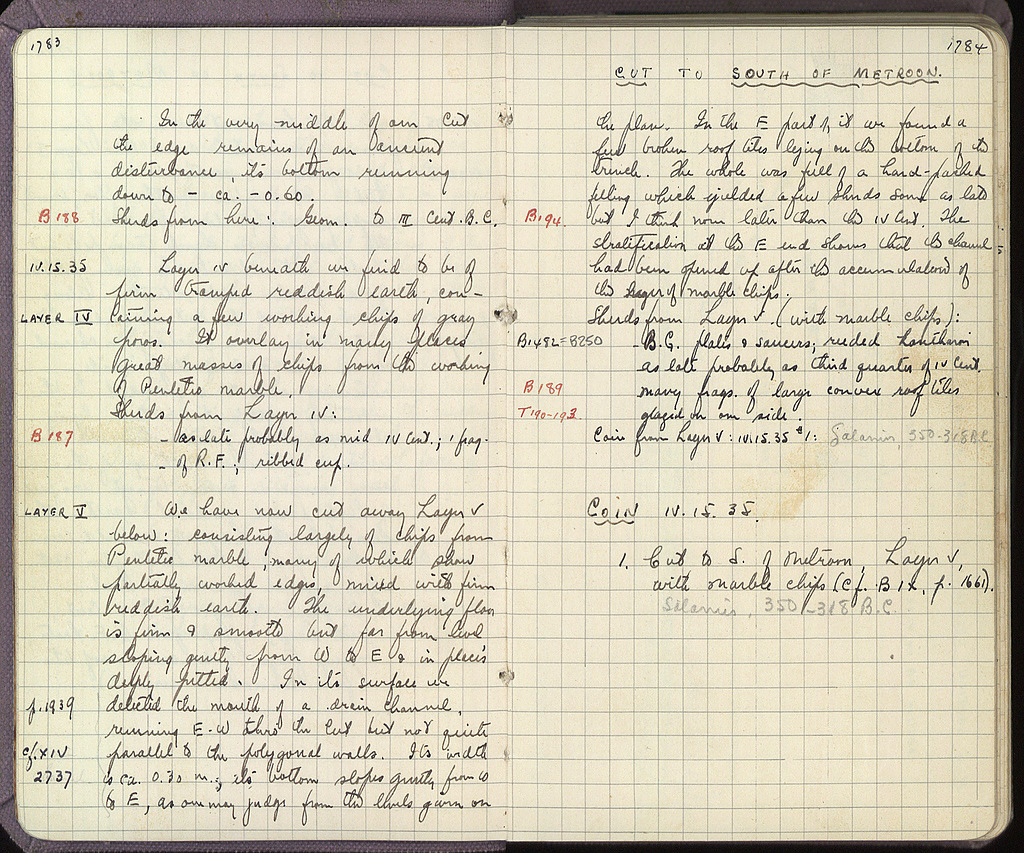 1783
In the very middle of our cut
the edge remains of an ancient
disturbance, its bottom running
down to - ca. - 0.60.
B 188 Sherds from here: Geom. to III Cent. B.C.
IV.15.35 Layer IV beneath we find to be of
firm tramped reddish earth, con-
LAYER IV taining a few working chips of gray
poros. It overlay in many places
great masses of chips from the working
of Pentelic marble.
Sherds from Layer IV:
B 187 - as late probably as mid IV Cent.; 1 frag.
- of R.F.; ribbed cup.
LAYER V We have now cut away Layer V
below: consisting largely of chips from
Pentelic marble, many of which show
partially worked edges, mixed with firm
reddish earth. The underlying floor
is firm & smooth but far from level
sloping gently from W to E & in places
deeply pitted. In its surface we
p. 1939 detected the mouth of a drain channel,
running E-W thro the cut but not quite
cf. XIV parallel to the polygonal walls. Its width
2737 is ca. 0.30 m.; its bottom slopes gently from W
to E, as one may judge from the levels given on
1784
CUT TO SOUTH OF METROON.
the plan. In the E part of it we found a
few broken roof tiles lying on the bottom of the
trench. The whole was full of a hard-packed
filling which yielded a few sherds some as late
B 194. but I think none later than the IV Cent. The
stratification at the E end shows that the channel
had been opened up after the accumulation of
the layer of marble chips.
Sherds from Layer V. (with marble chips):
B 1482=8250 - B.G. plates & saucers; reeded kantharoi
as late probably as third quarter of IV Cent.
B 189 many frags. of large convex roof tiles
T 190-193. glazed on one side.
Coin from Layer V: IV.15.35 #1: Salamis 350-318 B.C.
COIN IV.15.35.
1. Cut to S. of Metroon, Layer V,
with marble chips (Cf. B IX, p. 1661).
Salamis, 350-318 B.C.